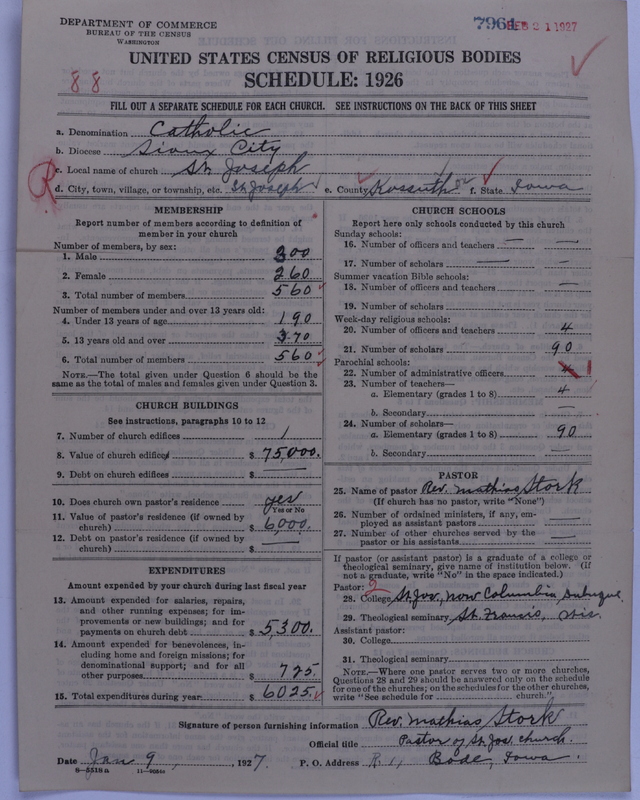 DEPARTMENT OF COMMERCE
BUREAU OF THE CENSUS
WASHINGTON
7964 FEB 21 1927
UNITED STATES CENSUS OF RELIGIOUS BODIES
88
SCHEDULE: 1926
FILL OUT A SEPARATE SCHEDULE FOR EACH CHURCH. SEE INSTRUCTIONS ON THE BACK OF THIS SHEET
a. Denomination Catholic
b. Diocese Sioux City
c. Local name of church St. Joseph
d. City, town, village, or township, etc. St. Joseph e. County Kossuth f. State Iowa
MEMBERSHIP
Report number of members according to definition of
member in your church
Number of members, by sex:
1. Male 300
2. Female 260
3. Total number of members 560
Number of members under and over 13 years old:
4. Under 13 years of age 190
5. 13 years old and over 370
6. Total number of members 560
NOTE.—The total given under Question 6 should be the
same as the total of males and females given under Question 3.
CHURCH BUILDINGS
See instructions, paragraphs 10 to 12
7. Number of church edifices 1
8. Value of church edifices $ 75,000.
9. Debt on church edifices $ —
10. Does church own pastor's residence yes
Yes or No
11. Value of pastor's residence (if owned by
church) $ 6,000.
12. Debt on pastor's residence (if owned by
church) $ —
EXPENDITURES
Amount expended by your church during last fiscal year
13. Amount expended for salaries, repairs,
and other running expenses; for im-
provements or new buildings; and for
payments on church debt $ 5,300.
14. Amount expended for benevolences, in-
cluding home and foreign missions; for
denominational support; and for all
other purposes $ 725.
15. Total expenditures during year $ 6025.
CHURCH SCHOOLS
Report here only schools conducted by this church
Sunday schools:
16. Number of officers and teachers — —
17. Number of scholars — —
Summer vacation Bible schools:
18. Number of officers and teachers —
19. Number of scholars
Week-day religious schools:
20. Number of officers and teachers 4
21. Number of scholars 90
Parochial schools:
22. Number of administrative officers 1
23. Number of teachers—
a. Elementary (grades 1 to 8) 4
b. Secondary —
24. Number of scholars—
a. Elementary (grades 1 to 8) 90
b. Secondary —
PASTOR
25. Name of pastor Rev. Mathias Stork
(If church has no pastor, write "None")
26. Number of ordained ministers, if any, em-
ployed as assistant pastors —
27. Number of other churches served by the
pastor or his assistants —
If pastor (or assistant pastor) is a graduate of a college or
theological seminary, give name of institution below. (If
not a graduate, write "No" in the space indicated.)
Pastor: 2
28. College St. Jos., now Columbia, Dubuque,
29. Theological seminary St. Francis, Wis.
Assistant pastor:
30. College
31. Theological seminary
NOTE.—Where one pastor serves two or more churches,
Questions 28 and 29 should be answered only on the schedule
for one of the churches; on the schedules for the other churches,
write "See schedule for church."
Signature of person furnishing information Rev. Mathias Stork
Official title Pastor of St. Jos. church.
Date Jan 9, 1927. P. O. Address R. 1, Bode, Iowa.
8—5518 a